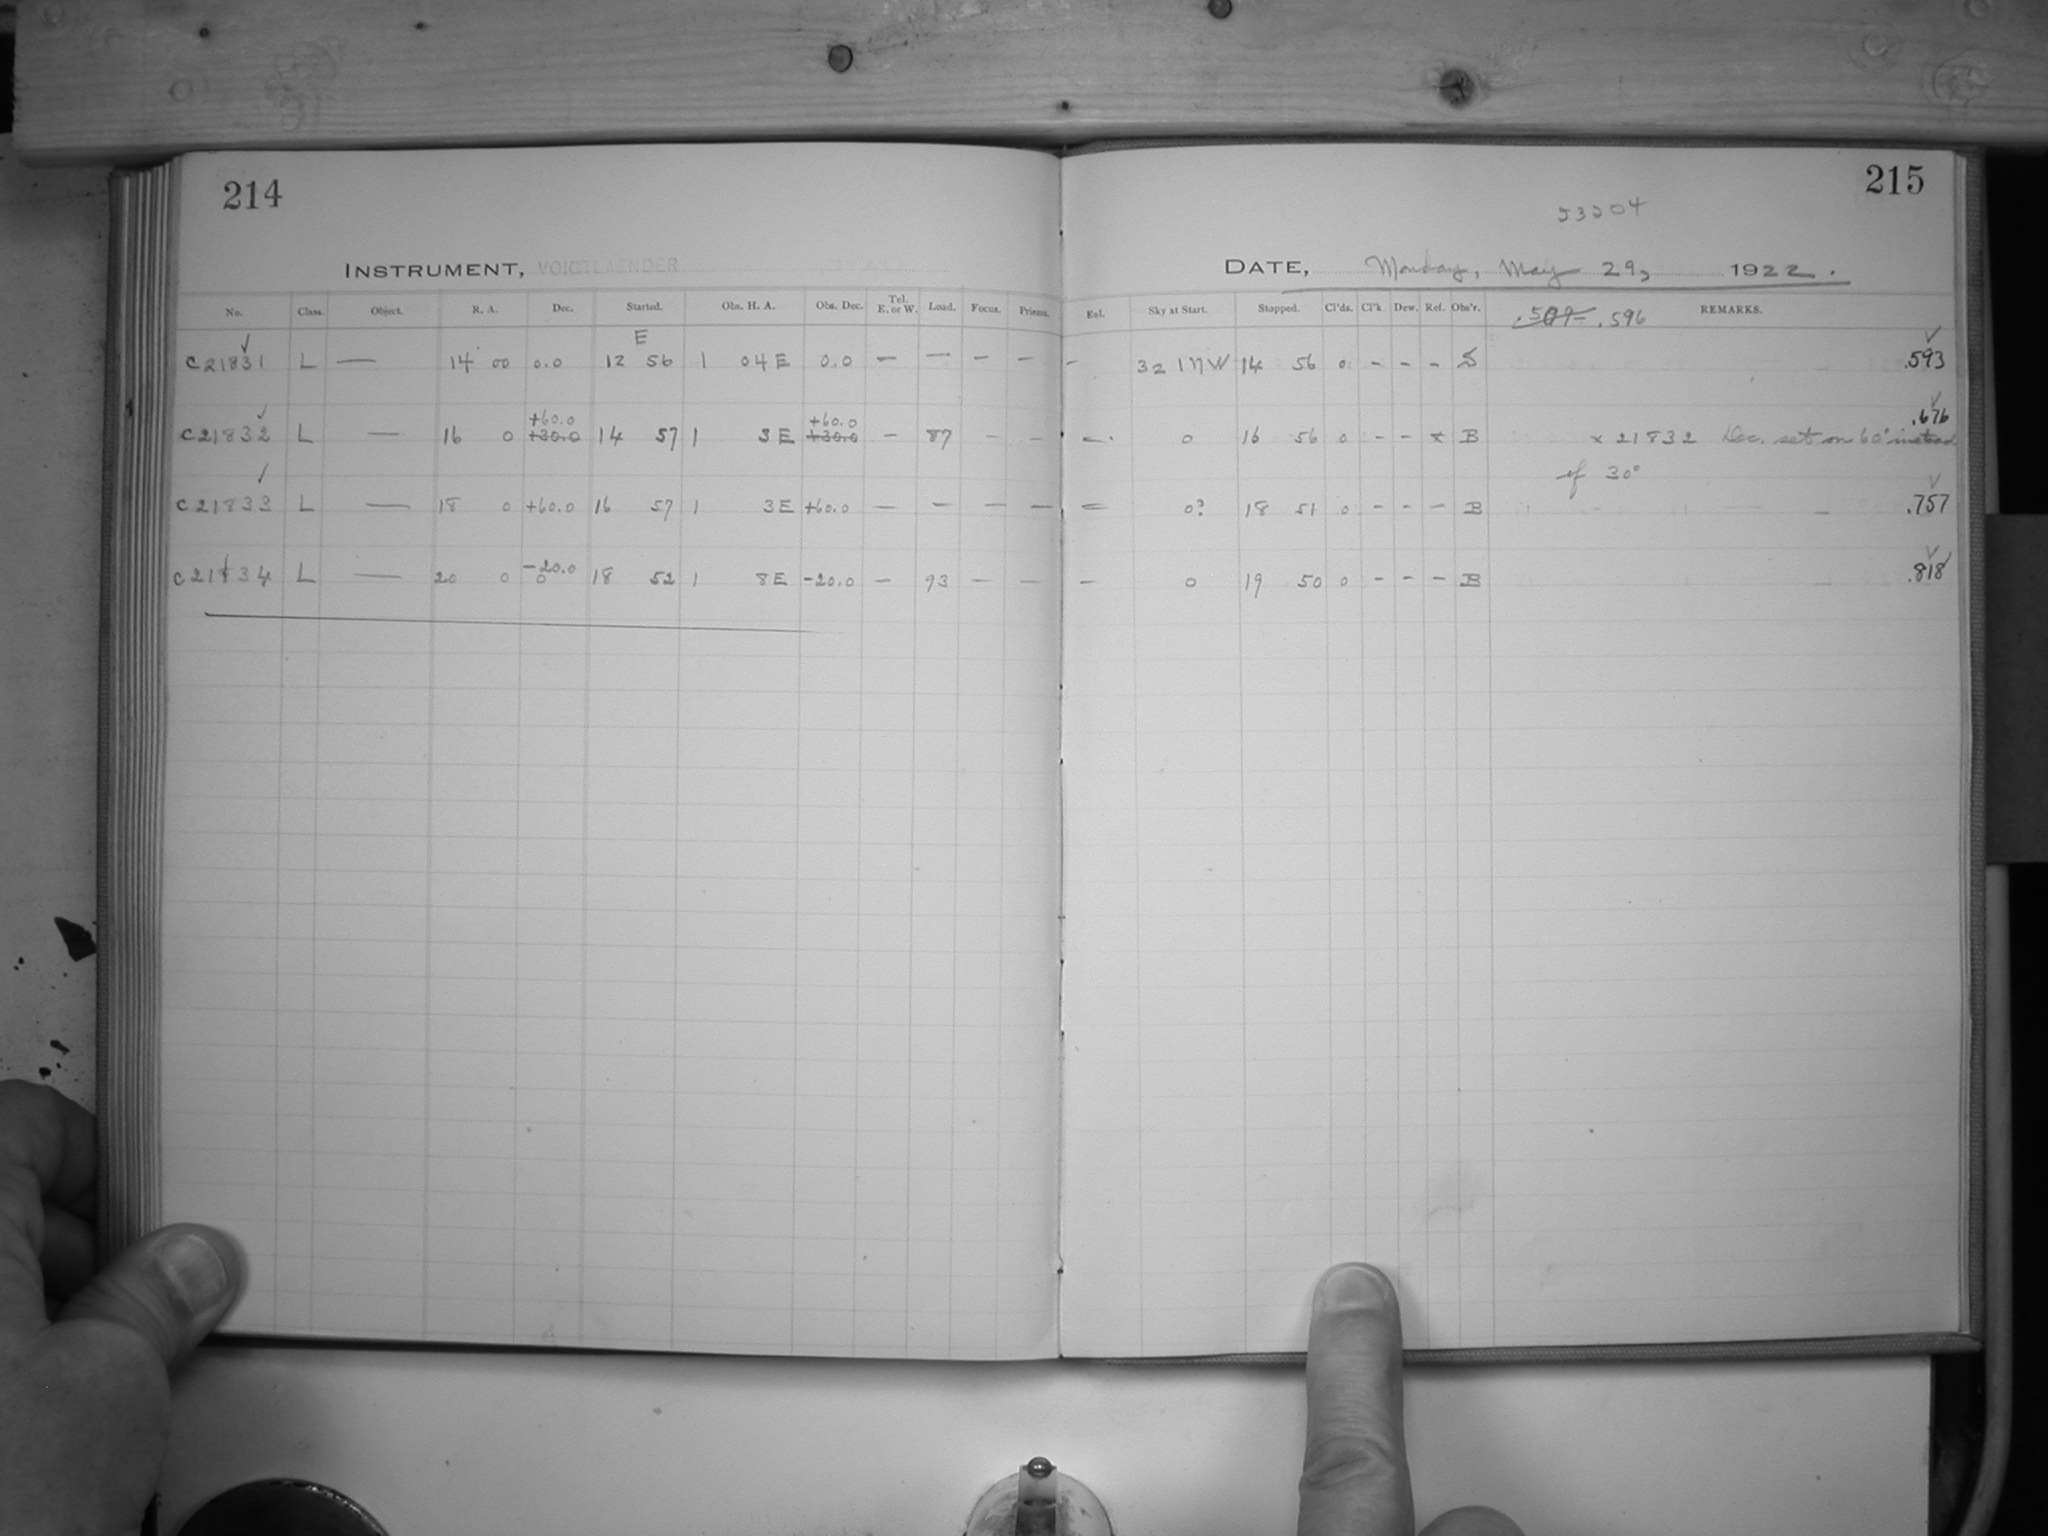 214
215
53204
INSTRUMENT, VOIGTLAENDER
DATE, Monday, May 29, 1922.
No. Class. Object. R. A. Dec. Started. Obs. H. A. Obs. Dec. Tel. E. or W. Load. Focus. Prisms. Enl. Sky at Start. Stopped. Cl'ds. Cl'k. Dew. Ref. Obs'r. .596 REMARKS.
E
C21831 L — 14 00 0.0 12 56 1 04 E 0.0 — — — — — 32 1 NW 14 56 0 - - - S .593
+60.0 +60.0 .676
C21832 L — 16 0 +30.0 14 57 1 3 E +30.0 — 87 — — — 0 16 56 0 - - x B x 21832 Dec. set on 60° instead
of 30°
C21833 L — 18 0 +60.0 16 57 1 3 E +60.0 — — — — = 0? 18 51 0 - - - B .757
-20.0
C21834 L — 20 0 0 18 52 1 8 E -20.0 — 93 — — — 0 19 50 0 - - - B .818